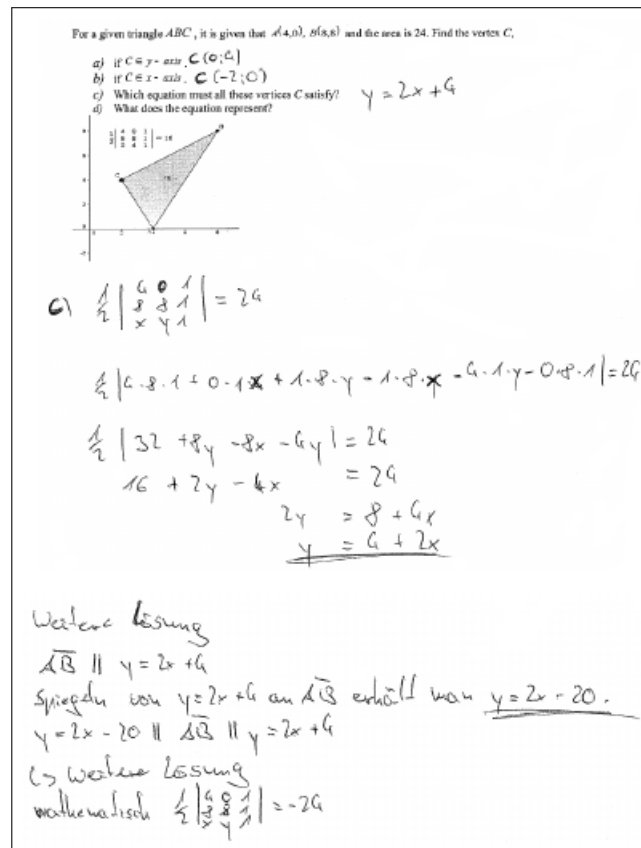 For a given triangle ABC, it is given that A(4,0), B(8,8) and the area is 24. Find the vertex C,
a) if C ∈ y - axis. C(0;4)
b) if C ∈ x - axis. C(-2;0)
c) Which equation must all these vertices C satisfy? y = 2x+4
d) What does the equation represent?
C) 1/2 | 4 0 1 |
| 8 8 1 | = 24
| x y 1 |
1/2 |4·8·1 + 0·1·x + 1·8·y - 1·8·x - 4·1·y - 0·8·1| = 24
1/2 | 32 + 8y - 8x - 4y | = 24
16 + 2y - 4x = 24
2y = 8 + 4x
y = 4 + 2x
Weitere Lösung
AB || y = 2x+4
Spiegeln von y=2x+4 an AB erhält man y=2x-20.
y=2x-20 || AB || y=2x+4
↳ Weitere Lösung
mathematisch 1/2 | 4 0 1 |
| 8 8 1 | = -24
| x y 1 |